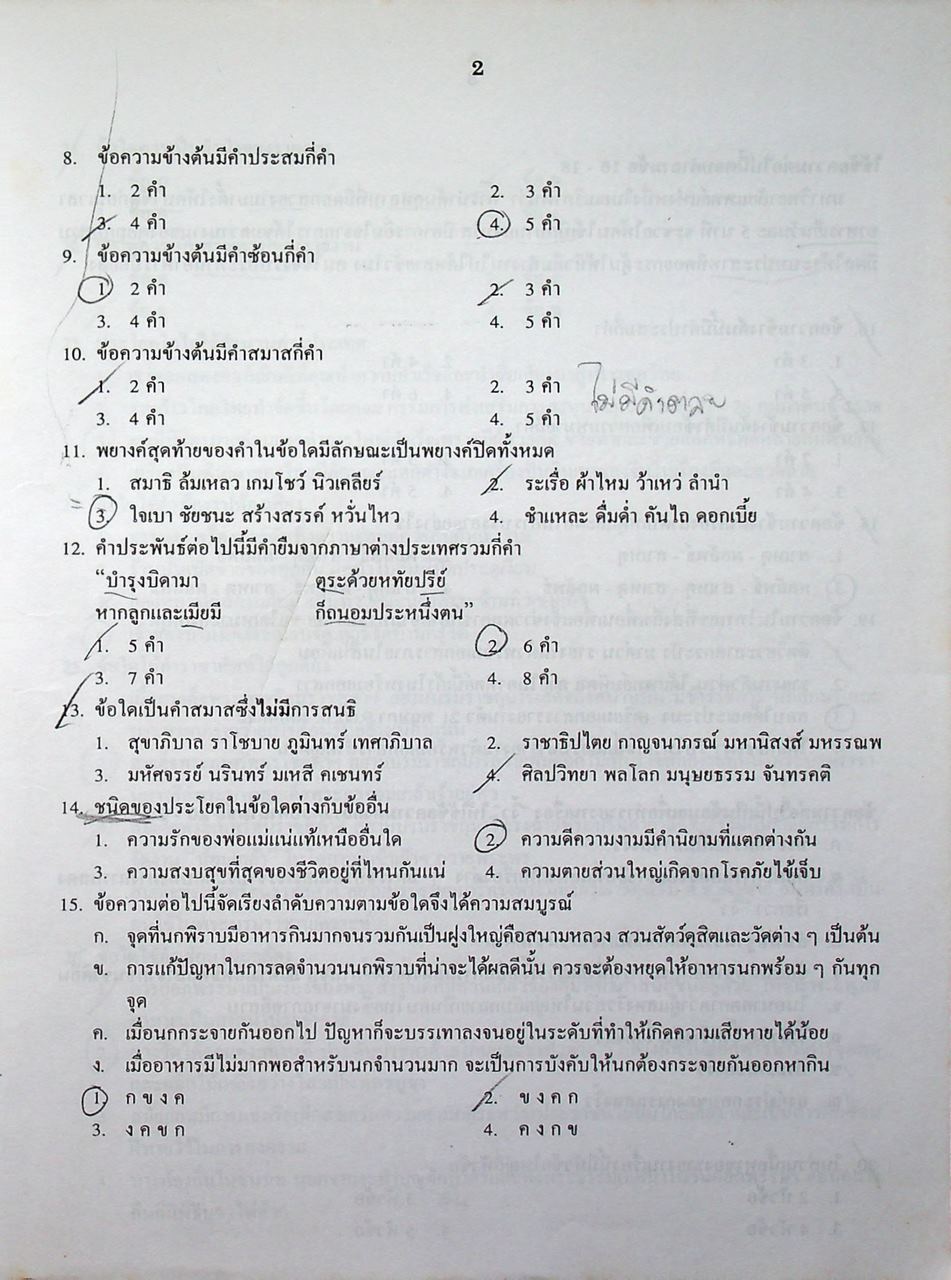 2
8. ข้อความข้างต้นมีคำประสมกี่คำ
1. 2 คำ 2. 3 คำ
3. 4 คำ 4. 5 คำ
9. ข้อความข้างต้นมีคำซ้อนกี่คำ
1. 2 คำ 2. 3 คำ
3. 4 คำ 4. 5 คำ
10. ข้อความข้างต้นมีคำสมาสกี่คำ
1. 2 คำ 2. 3 คำ
3. 4 คำ 4. 5 คำ ไม่มีคำตาย
11. พยางค์สุดท้ายของคำในข้อใดมีลักษณะเป็นพยางค์ปิดทั้งหมด
1. สมาธิ ล้มเหลว เกมโชว์ นิวเคลียร์ 2. ระเรื่อ ผ้าไหม ว้าเหว่ ลำนำ
3. ใจเบา ชัยชนะ สร้างสรรค์ หวั่นไหว 4. ชำแหละ ดื่มด่ำ คันไถ ดอกเบี้ย
12. คำประพันธ์ต่อไปนี้มีคำยืมจากภาษาต่างประเทศรวมกี่คำ
“บำรุงบิดามา ตุระด้วยหทัยปรีย์
หากลูกและเมียมี ก็ถนอมประหนึ่งตน”
1. 5 คำ 2. 6 คำ
3. 7 คำ 4. 8 คำ
13. ข้อใดเป็นคำสมาสซึ่งไม่มีการสนธิ
1. สุขาภิบาล ราโชบาย ภูมินทร์ เทศาภิบาล 2. ราชาธิปไตย กาญจนาภรณ์ มหานิสงส์ มหรรณพ
3. มหัศจรรย์ นรินทร์ มเหสี คเชนทร์ 4. ศิลปวิทยา พลโลก มนุษยธรรม จันทรคติ
14. ชนิดของประโยคในข้อใดต่างกับข้ออื่น
1. ความรักของพ่อแม่แน่แท้เหนืออื่นใด 2. ความดีความงามมีคำนิยามที่แตกต่างกัน
3. ความสงบสุขที่สุดของชีวิตอยู่ที่ไหนกันแน่ 4. ความตายส่วนใหญ่เกิดจากโรคภัยไข้เจ็บ
15. ข้อความต่อไปนี้จัดเรียงลำดับความตามข้อใดจึงได้ความสมบูรณ์
ก. จุดที่นกพิราบมีอาหารกินมากจนรวมกันเป็นฝูงใหญ่คือสนามหลวง สวนสัตว์ดุสิตและวัดต่าง ๆ เป็นต้น
ข. การแก้ปัญหาในการลดจำนวนนกพิราบที่น่าจะได้ผลดีนั้น ควรจะต้องหยุดให้อาหารนกพร้อม ๆ กันทุก
จุด
ค. เมื่อนกกระจายกันออกไป ปัญหาก็จะบรรเทาลงจนอยู่ในระดับที่ทำให้เกิดความเสียหายได้น้อย
ง. เมื่ออาหารมีไม่มากพอสำหรับนกจำนวนมาก จะเป็นการบังคับให้นกต้องกระจายกันออกหากิน
1. ก ข ง ค 2. ข ง ค ก
3. ง ค ข ก 4. ค ง ก ข